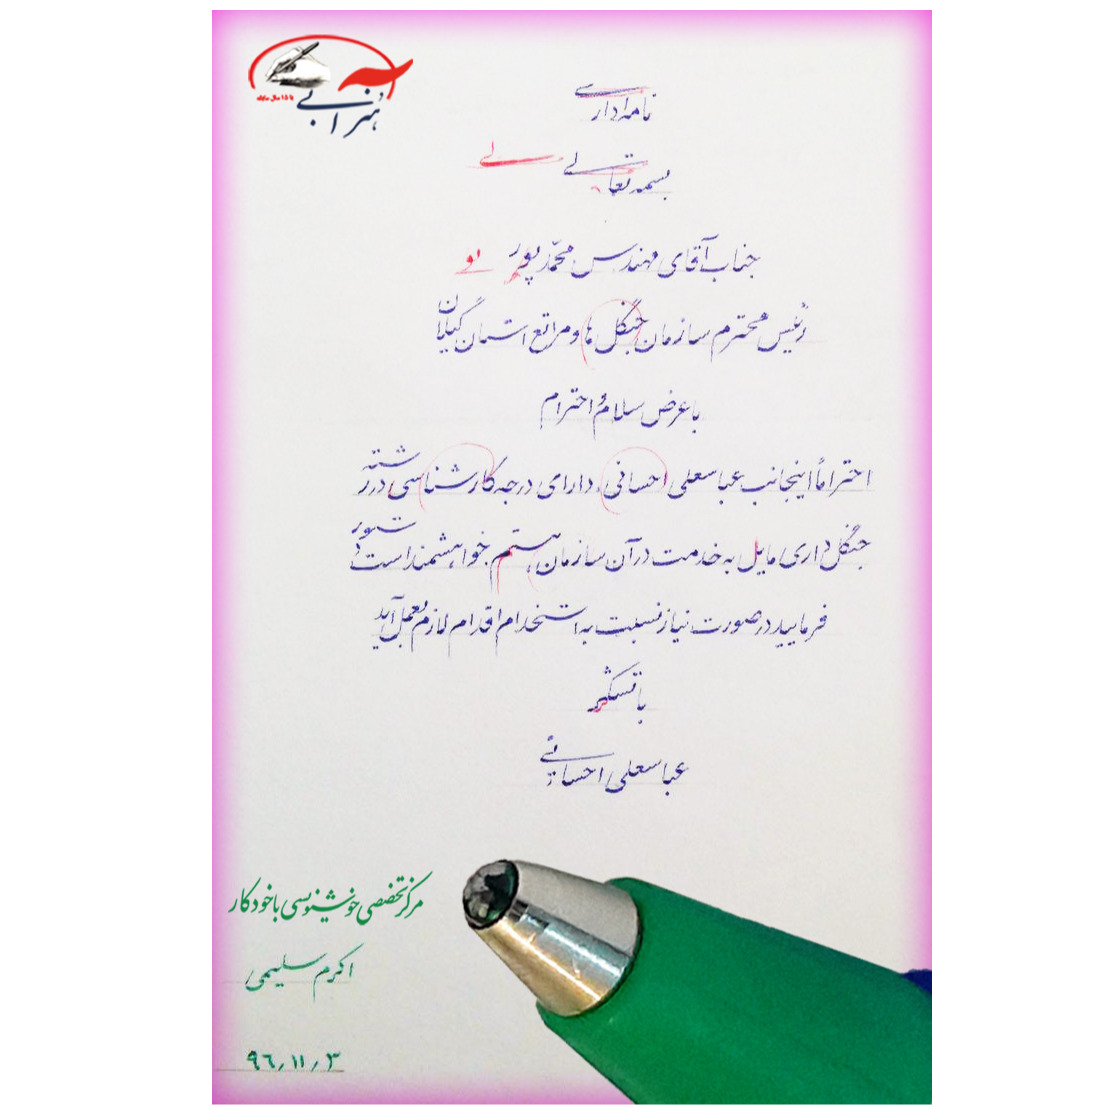 هنر آبی
با ۱۵ سال سابقه
نامه اداری
بسمه تعالی لی
جناب آقای مهندس محمّدپور پو
رئیس محترم سازمان جنگل ها و مراتع استان گیلان
با عرض سلام و احترام
احتراماً اینجانب عباسعلی احسانی دارای درجه کارشناسی در رشته
جنگل داری مایل به خدمت در آن سازمان هستم خواهشمند است دستور
فرمایید در صورت نیاز نسبت به استخدام اقدام لازم بعمل آید
با تشکّر
عباسعلی احسانی
مرکز تخصصی خوشنویسی با خودکار
اکرم سلیمی
۹۶/۱۱/۳